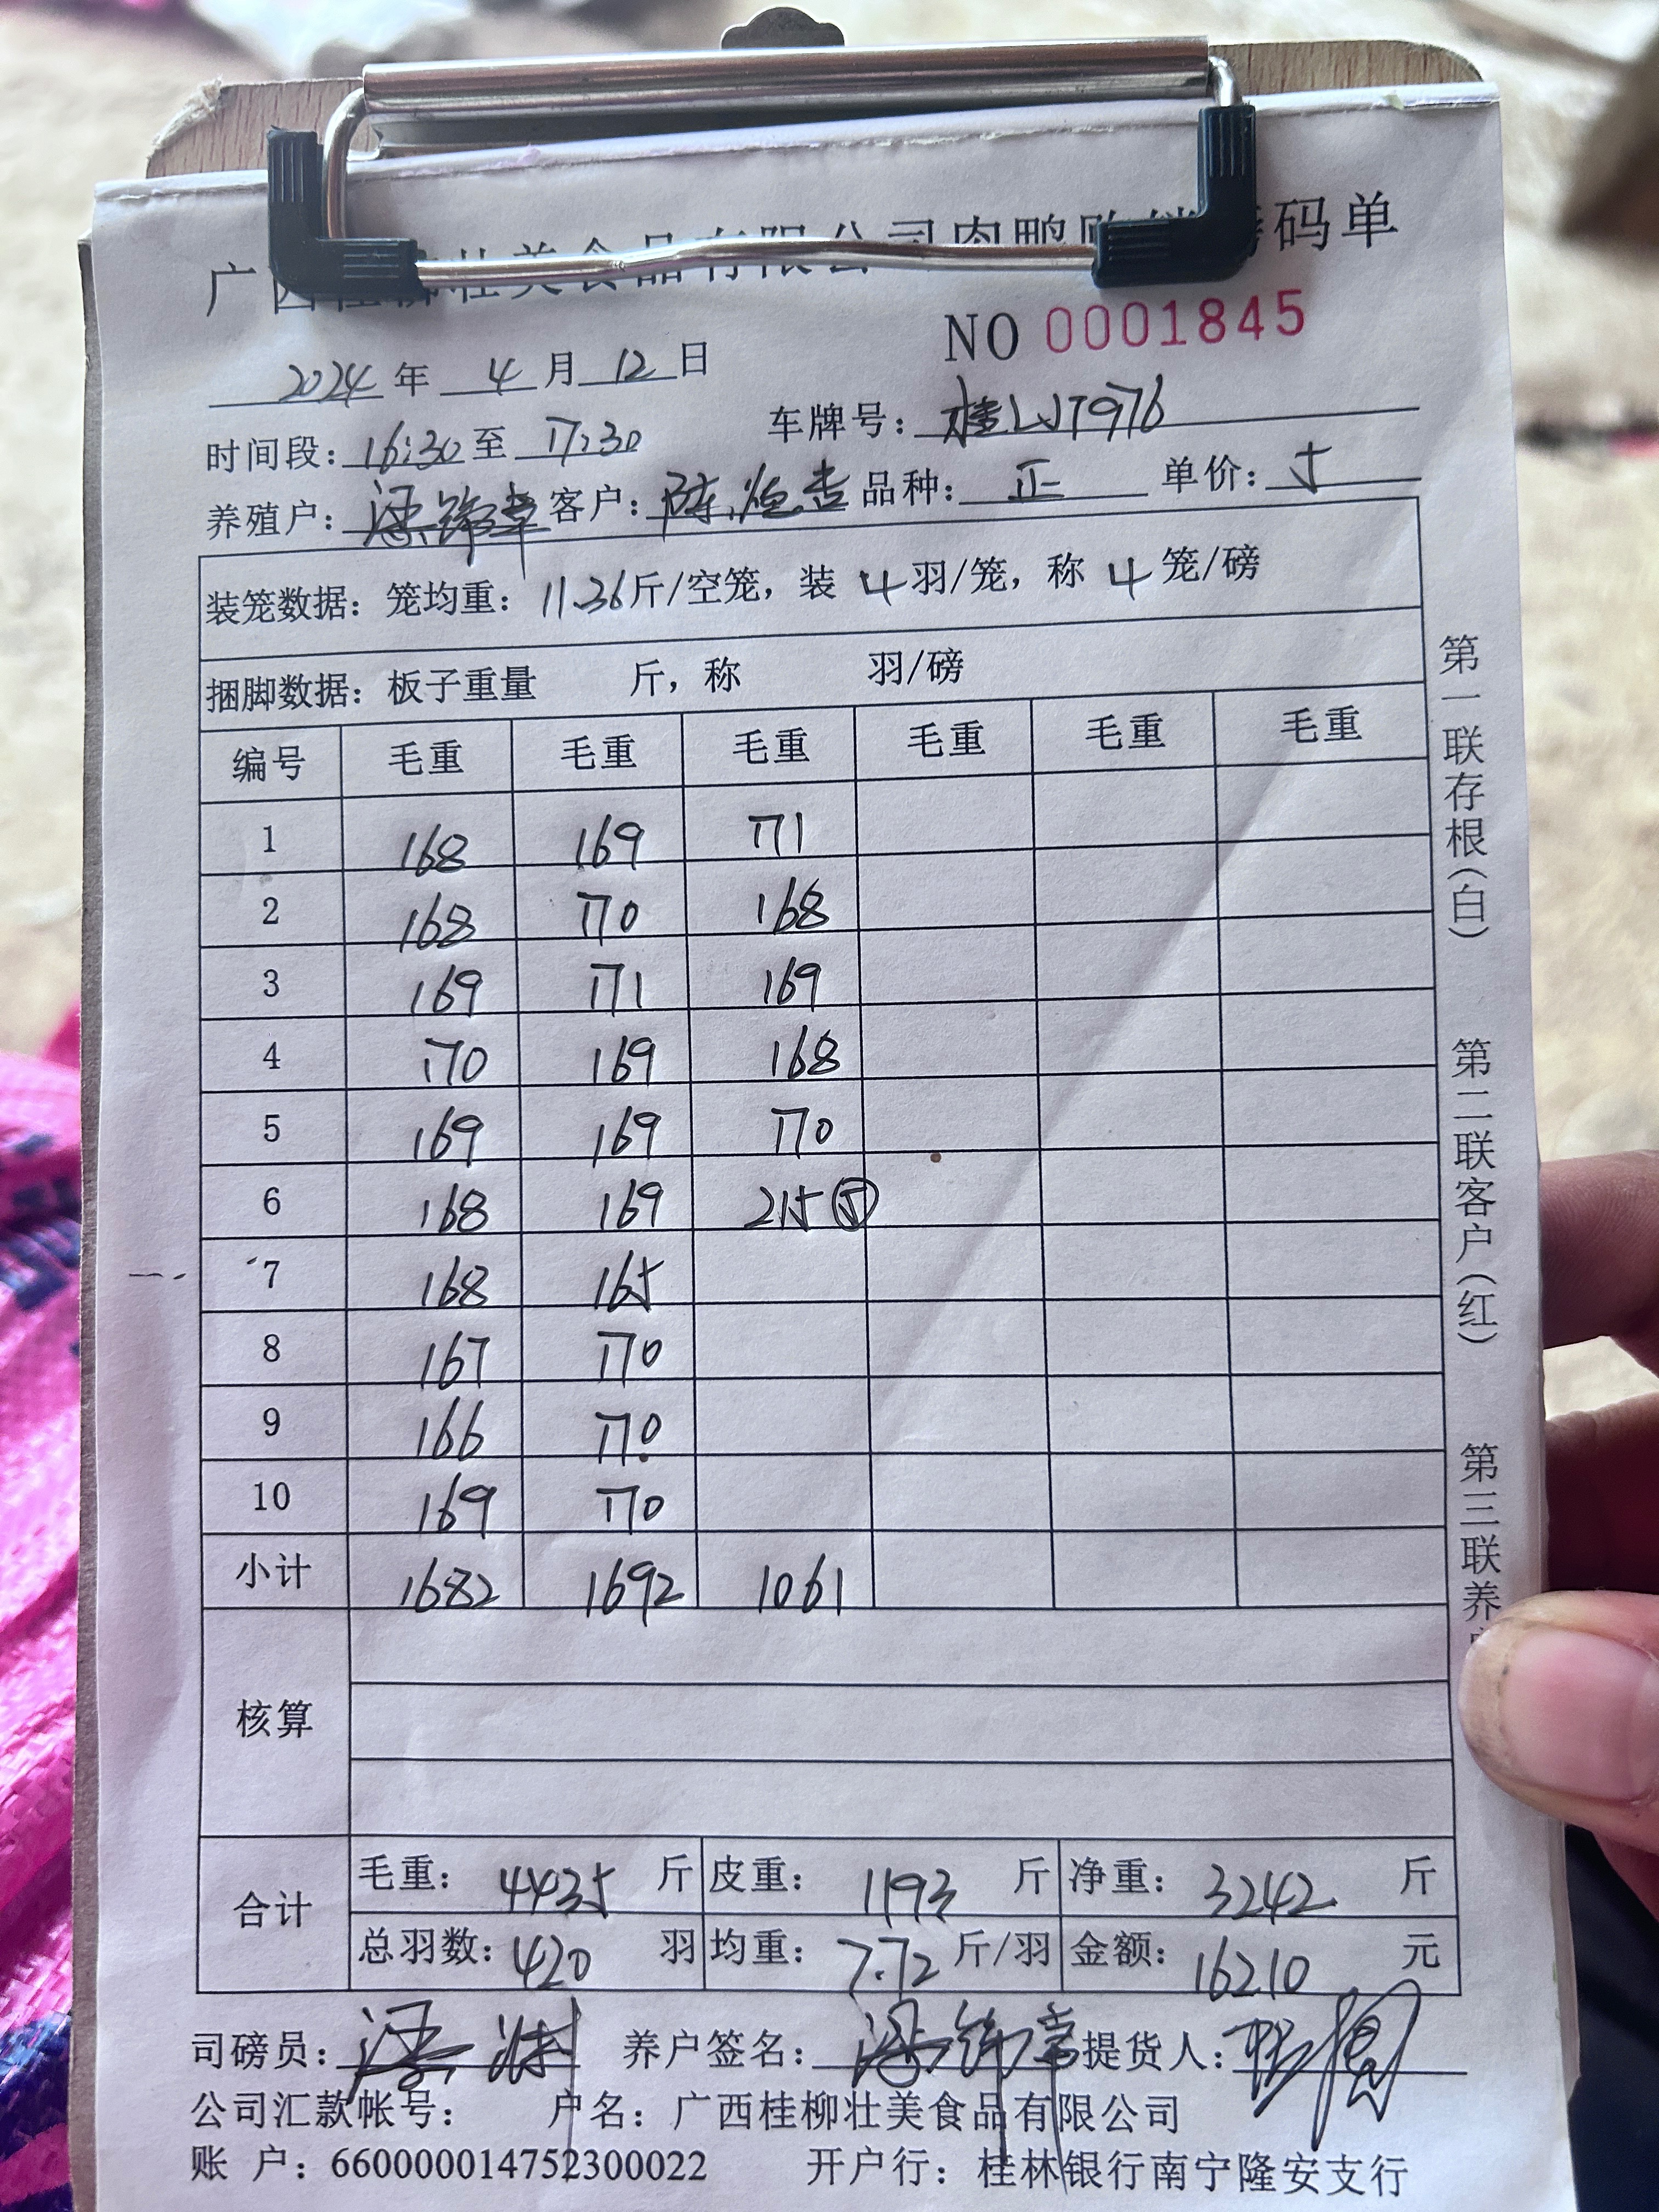 广西桂柳壮美食品有限公司肉鸭购销磅码单
NO 0001845
2024 年 4 月 12 日
时间段: 16:30 至 17:30 车牌号: 桂LJT976
养殖户: 梁锦章 客户: 陈 品种: 正 单价: 5
装笼数据: 笼均重: 11.36斤/空笼, 装 4 羽/笼, 称 4 笼/磅
捆脚数据: 板子重量 斤, 称 羽/磅
编号 毛重 毛重 毛重 毛重 毛重 毛重
1 168 169 171
2 168 170 168
3 169 171 169
4 170 169 168
5 169 169 170
6 168 169 215 ⑤
7 168 165
8 167 170
9 166 170
10 169 170
小计 1682 1692 1061
核算
合计
毛重: 4435 斤 皮重: 1193 斤 净重: 3242 斤
总羽数: 420 羽 均重: 7.72 斤/羽 金额: 16210 元
司磅员: 梁 养户签名: 梁锦章 提货人:
公司汇款帐号: 户名: 广西桂柳壮美食品有限公司
账 户: 660000014752300022 开户行: 桂林银行南宁隆安支行
第一联存根(白) 第二联客户(红) 第三联养